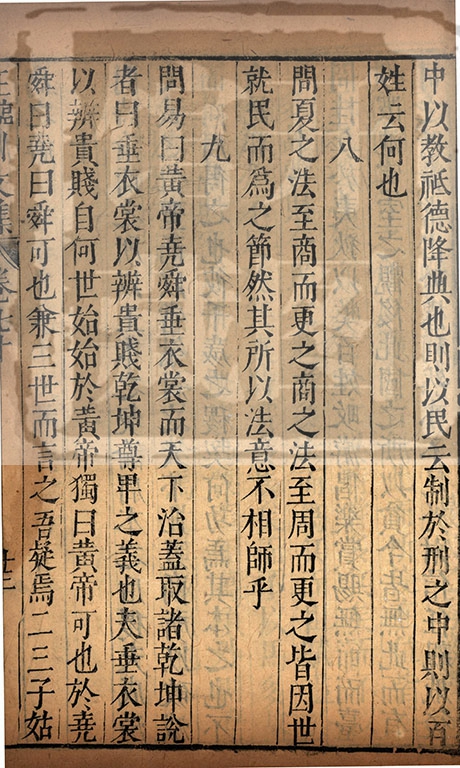 中以教祗德降典也則以民云制於刑之中則以百
姓云何也
八
問夏之法至商而更之商之法至周而更之皆因世
就民而為之節然其所以法意不相師乎
九
問易曰黃帝堯舜垂衣裳而天下治蓋取諸乾坤說
者曰垂衣裳以辨貴賤乾坤尊卑之義也夫垂衣裳
以辨貴賤自何世始始於黃帝獨曰黃帝可也於堯
舜曰堯曰舜可也兼三世而言之吾疑焉二三子姑
王臨川文集 卷七十 廿二